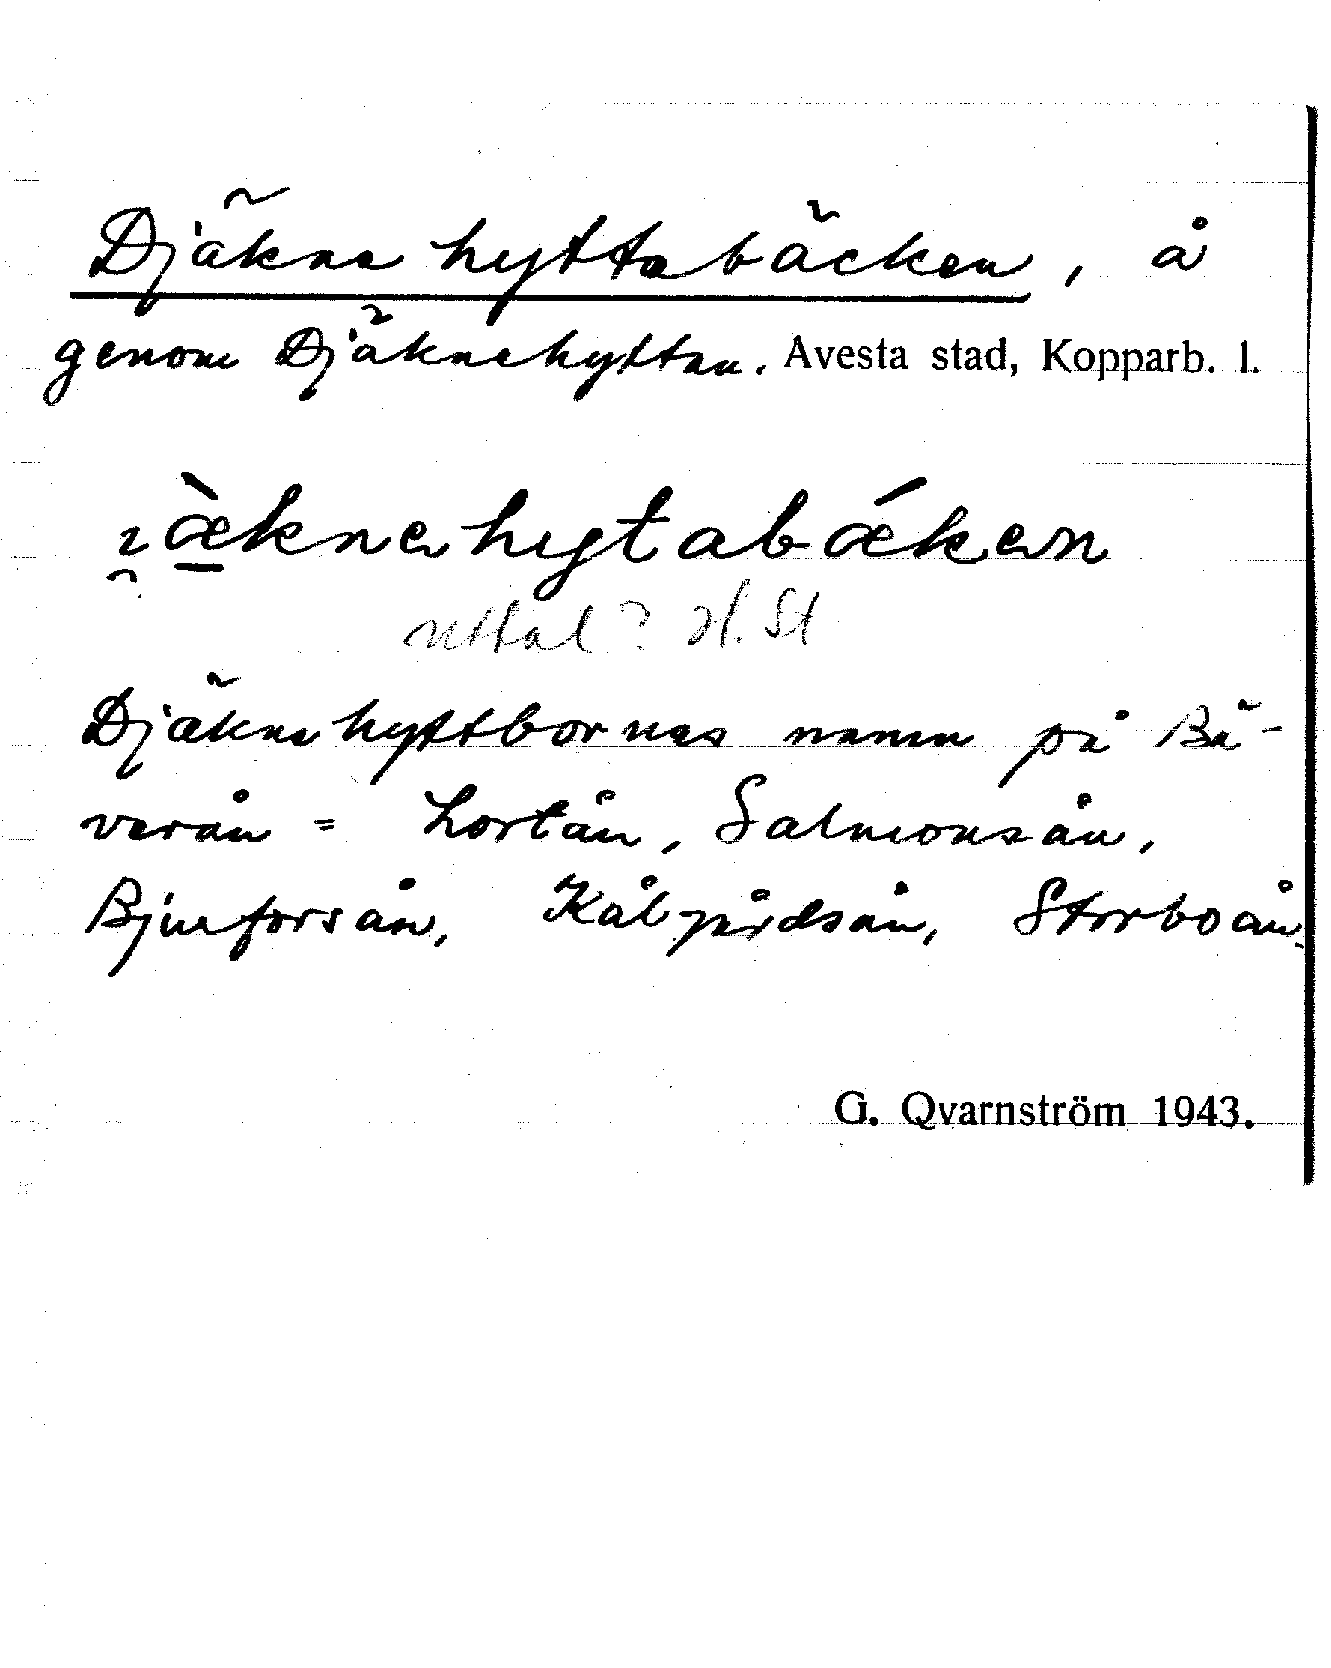 Djäknehyttabäcken, å
genom Djäknehyttan. Avesta stad, Kopparb. l.
i̯æ̀knehytabǽken
uttal? H. St
Djäknehyttbornas namn på Bä-
verån = Lortån, Salmonsån,
Bjurforsån, Kålgårdsån, Storboån.
G. Qvarnström 1943.